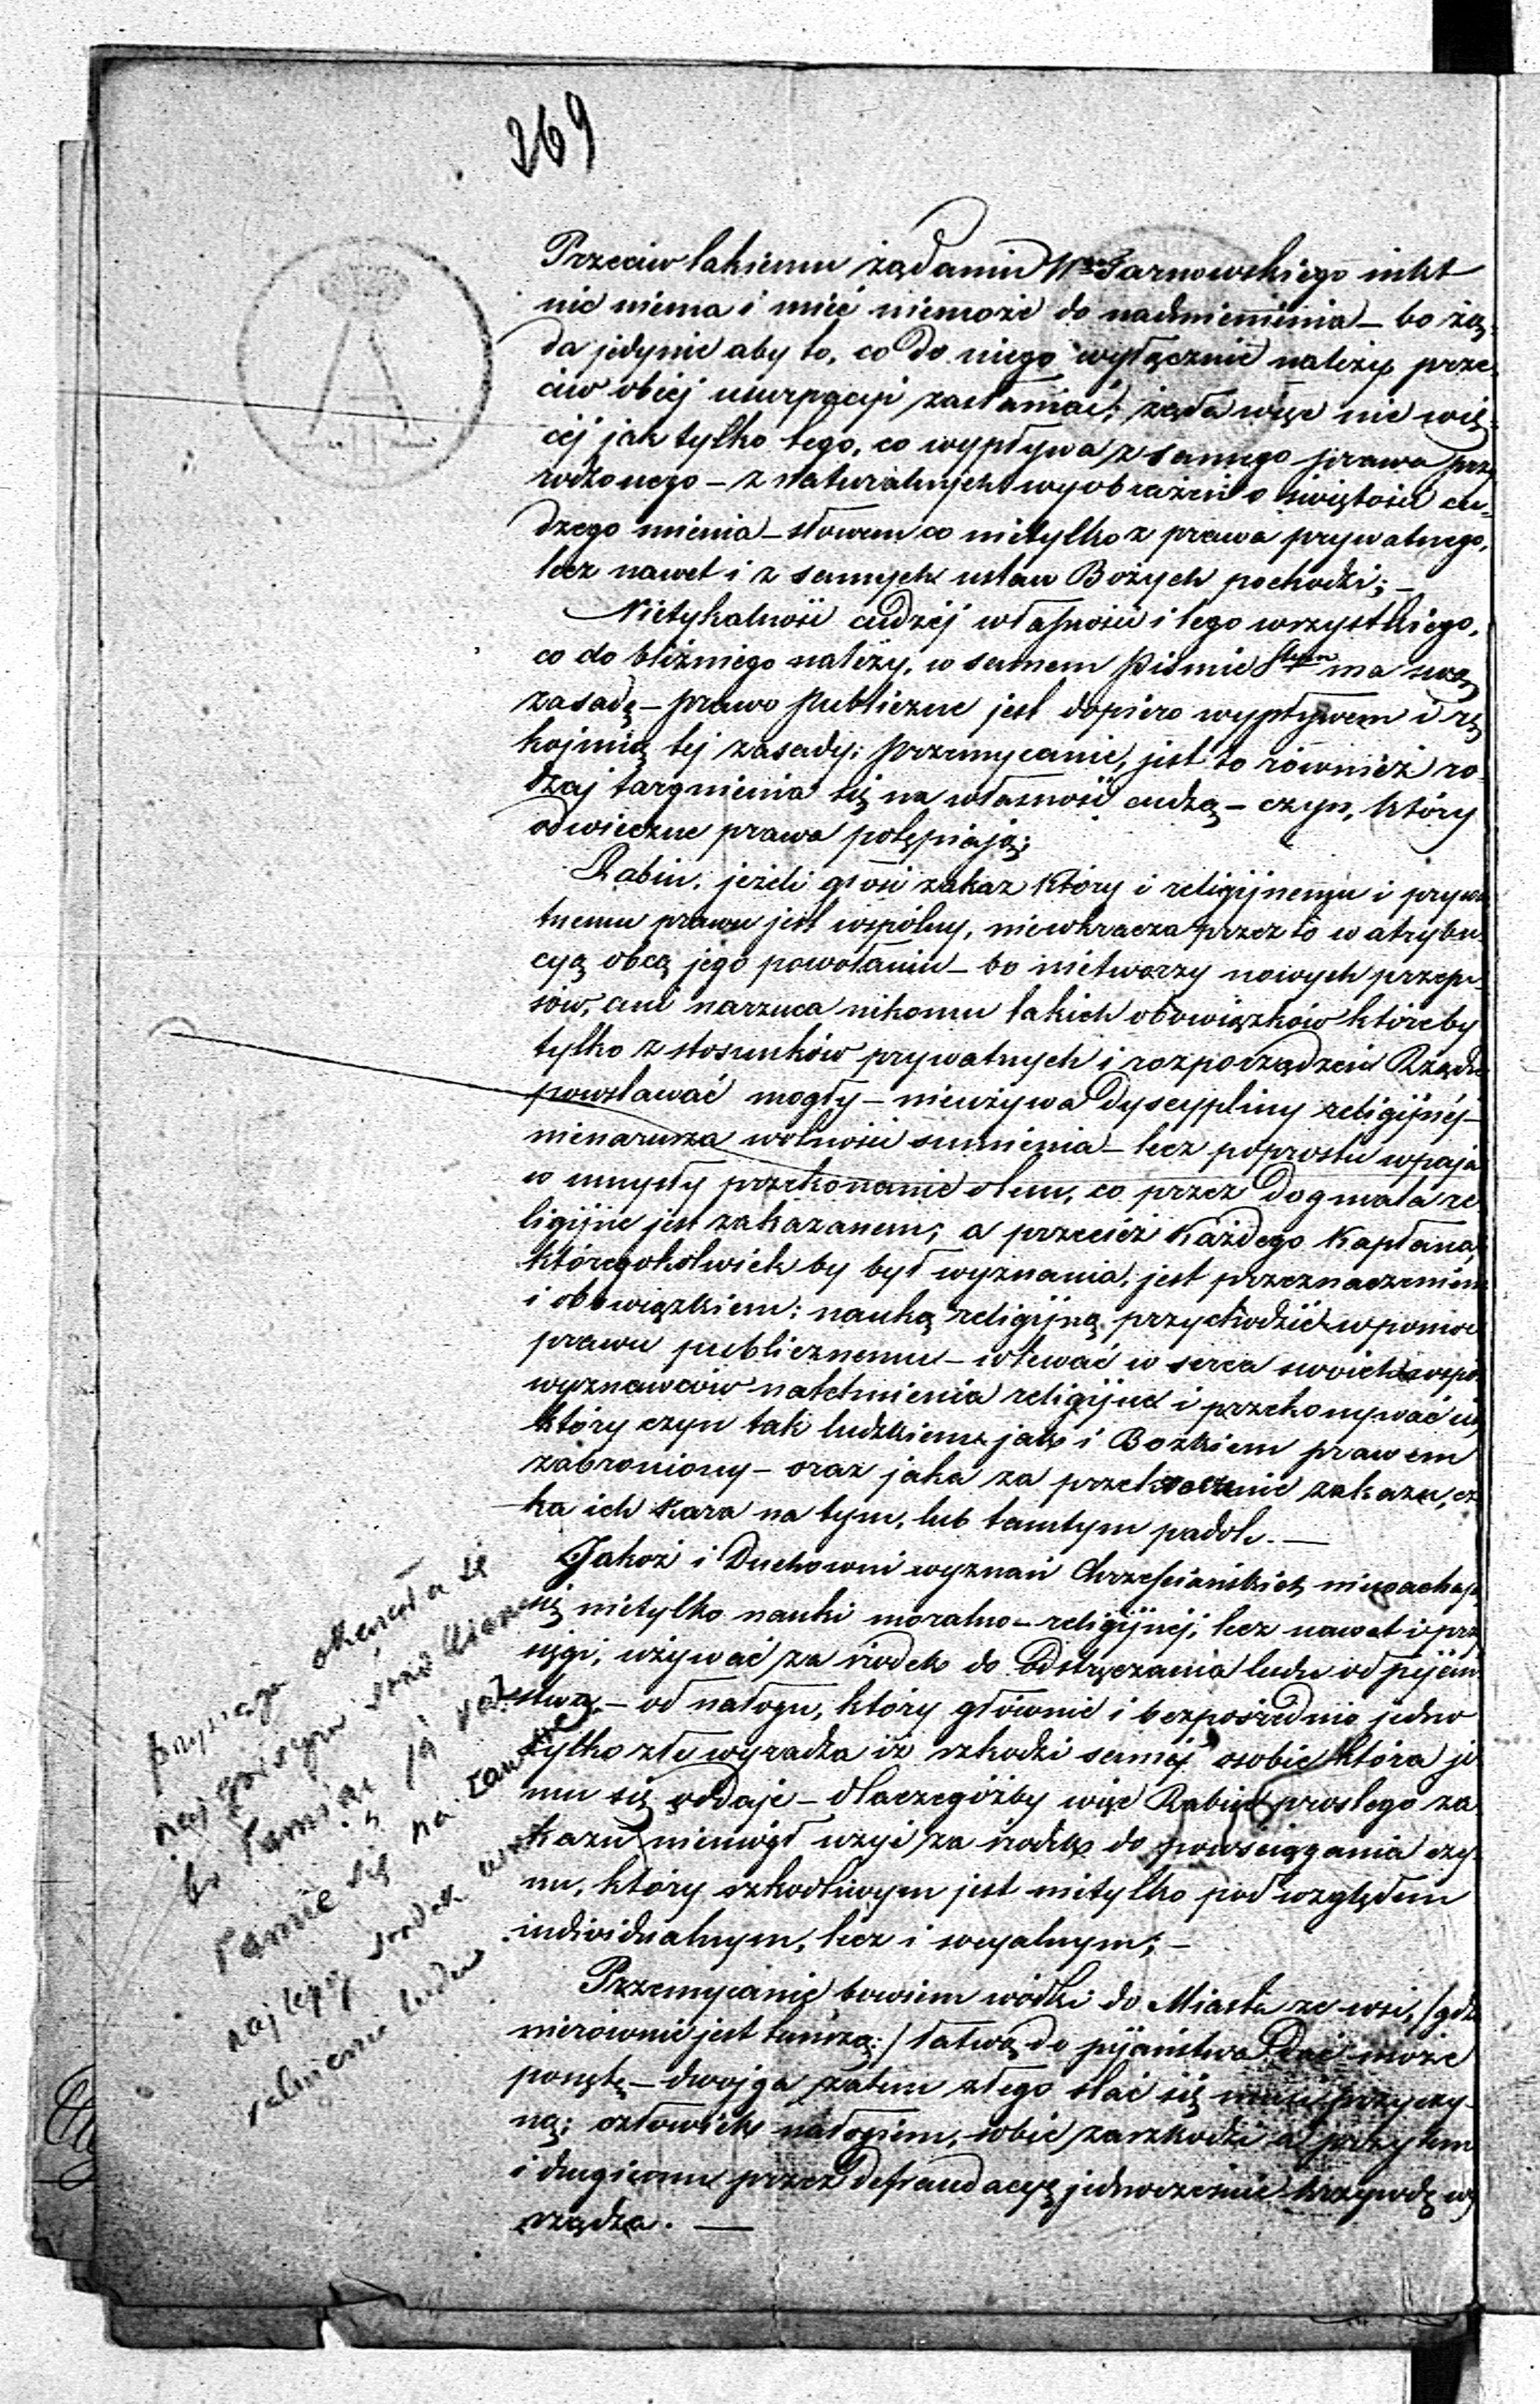 269
Przeciw takiemu żądaniu Wgo Tarnowskiego nikt
nic niema i mieć niemoże do nadmienienia – bo żą-
da jedynie aby to, co do niego wyłącznie należy, prze-
ciw obcéj usurpacyi zasłaniać; żąda więc nic wię-
céj jak tylko tego, co wypływa z samego prawa przy
rodzonego – z naturalnych wyobrażeń o świętości cu-
dzego mienia – słowem co nietylko z prawa prywatnego,
lecz nawet i z samych ustaw Bożych pochodzi; –
Nietykalność cudzéj własności i tego wszystkiego,
co do bliźniego należy, w samem Piśmie Stem ma swą
zasadę – prawo publiczne jest dopiero wypływem i rę
kojmią téj zasady; przemycanie, jest to również ro-
dzaj targnienia się na własność cudzą – czyn, który
odwieczne prawa potępiają;
Rabin, jeżeli głosi zakaz który i religijnemu i prywa
tnemu prawu jest wspólny, niewkracza przez to w atrybu-
cyą obcą jego powołaniu – bo nietworzy nowych przepi-
sów, ani narzuca nikomu takich obowiązków któreby
tylko z stosunków prywatnych i rozporządzeń Rządu
powstawać mogły – nieużywa dyscypliny religijnéj –
nienarusza wolności sumienia – lecz poprostu wpaja
w umysły przekonanie o tem, co przez dogmata re
ligijne jest zakazanem; a przecież każdego kapłana,
któregokolwiek by był wyznania, jest przeznaczeniem
i obowiązkiem: nauką religijną przychodzić w pomoc
prawu publicznemu – wlewać w serca swoich współ
wyznawców natchnienia religijne i przekonywać ich
który czyn tak ludzkiem jak i Bozkiem prawem
zabroniony – oraz jaka za przekroczenie zakazu, cze
ka ich kara na tym, lub tamtym padole. –
Jakoż i Duchowni wyznań Chrześciańskich
się nietylko nauki moralno – religijnéj, lecz nawet i przy
sięgi, używać za środek do odstręczania ludu od pijań
stwa, – od nałogu, który głównie i bezpośrednio jedno
tylko złe wyradza iż szkodzi saméj osobie która je
mu się oddaje – dlaczegóżby więc Rabin prostego za
kazu niemógł użyć za środek do powściągania czy-
nu, który szkodliwym jest nietylko pod względem
individualnym, lecz i socyalnym; –
Przemycanie bowiem wódki do Miasta ze wsi, /gdzie
nierównie jest tańszą:/ łatwą do pijaństwa dać może
ponętę – dwojga zatem złego stać się musi przyczy-
ną; człowiek nałogiem, sobie zaszkodzi a przytem
i drugiemu przez defraudacyę jednocześnie krzywdę wy
rządza. –
przysięga okazała się
najgorszym środkiem
bo łamiąc ją raz
łamie się na zawsze
najlepszy środek
ludu